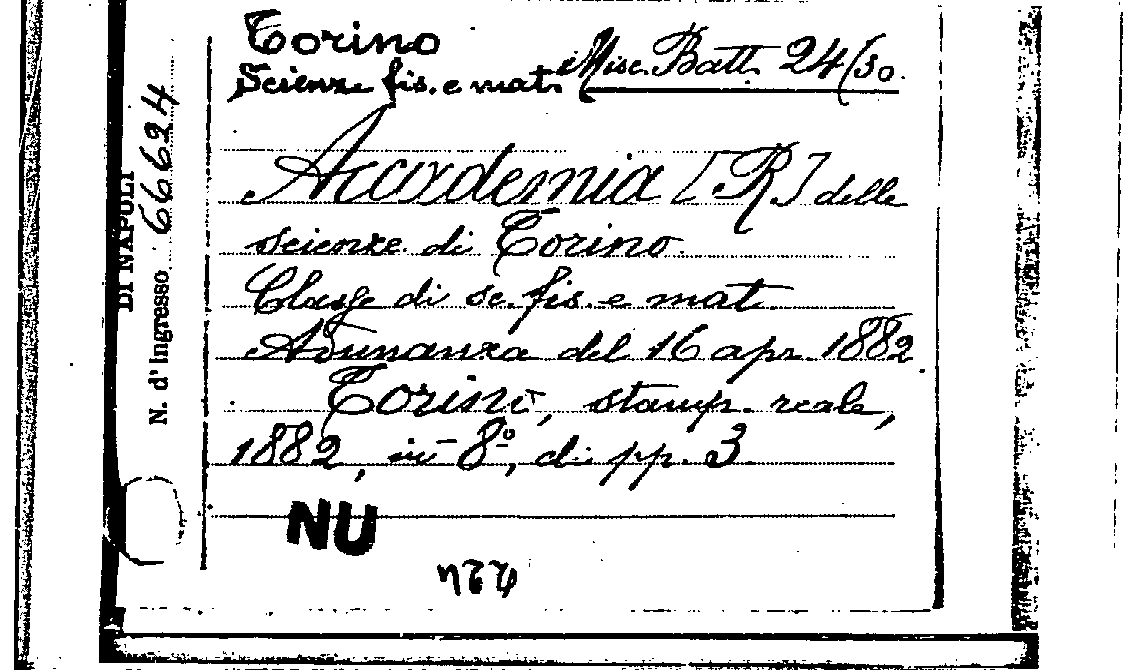 Torino
Scienze fis. e mat.
Misc. Batt. 24/30.
Accademia [R] delle
scienze di Torino.
Classe di sc. fis. e mat.
Adunanza del 16 apr. 1882
Torino, stamp. reale,
1882, in 8º, di pp. 3
NU
DI NAPOLI
N. d'Ingresso 66624